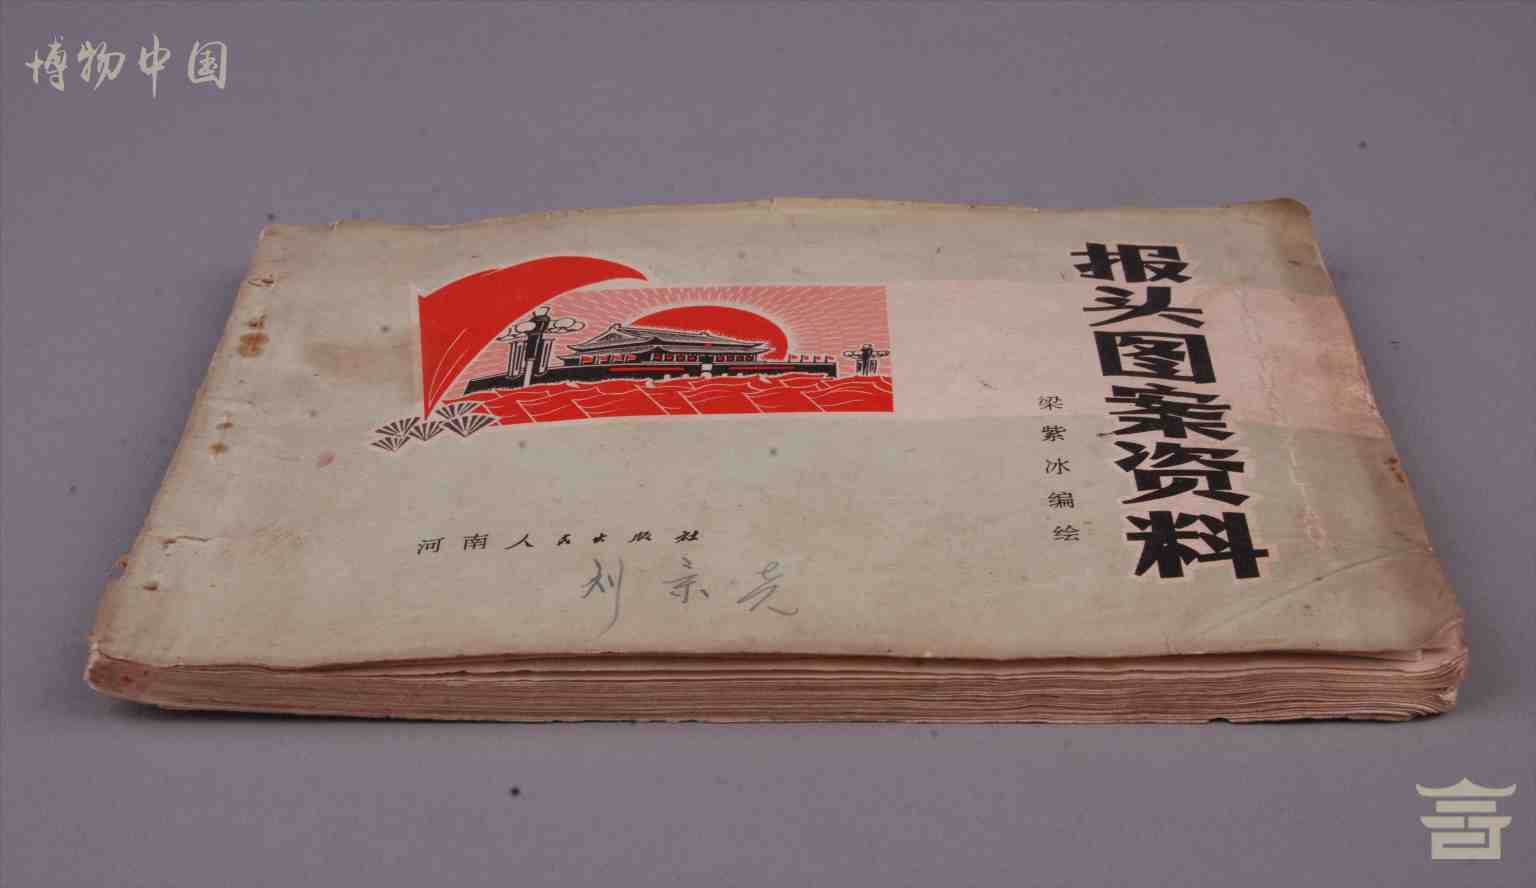 博物中国
报头图案资料
梁紫冰编绘
河南人民出版社
刘宗尧